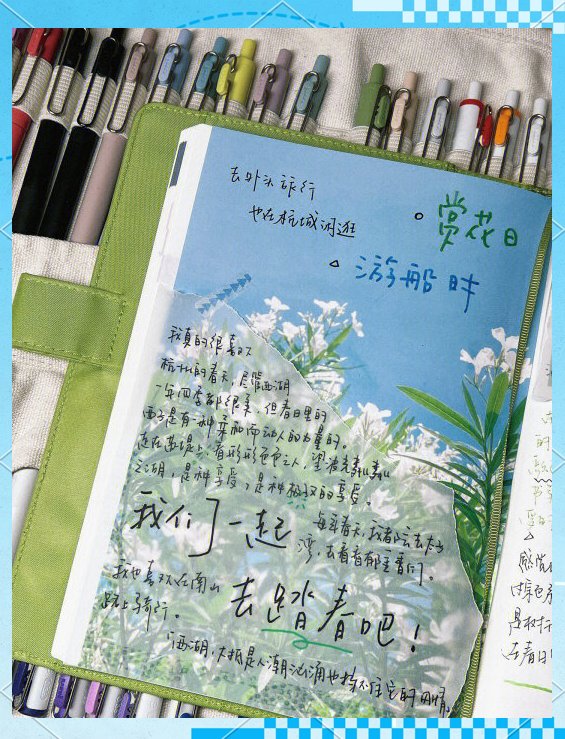 去外头旅行
也在杭城闲逛
赏花日
游船时
我真的很喜欢
杭州的春天,尽管西湖
一年四季都很美,但春日里的
西子是有一种柔和而动人的力量的。
走在苏堤上,看形形色色之人,望波光
之湖,是种享受,是种极致的享受。
每年春天,我都会去太子
湾,去看看郁金香们。
我们一起
我也喜欢在南山
路上骑行。
去踏春吧!
西湖,大抵是人潮汹涌也挡不住它的
的
感
是
在春日